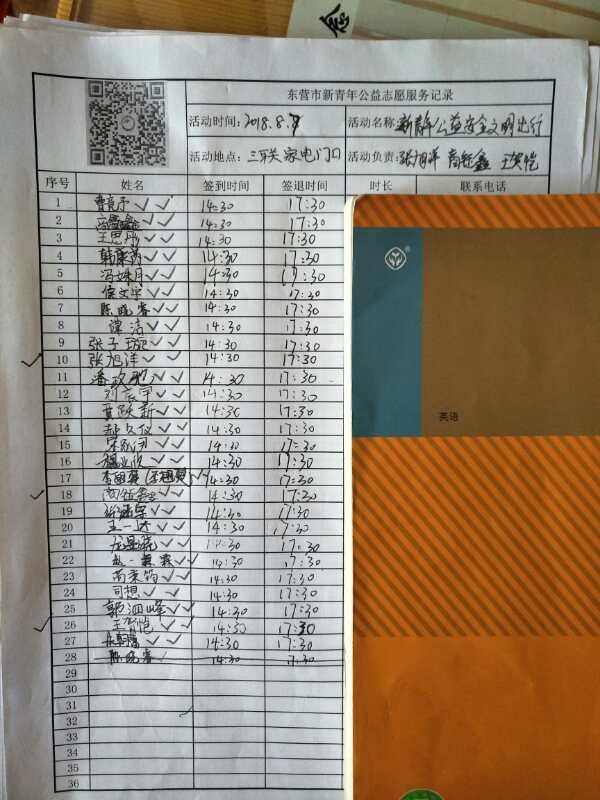 东营市新青年公益志愿服务记录
活动时间：2018.8.7 活动名称：新青年公益安全文明出行
活动地点：三联家电门口 活动负责：张旭洋 商钰鑫 王贺恺
序号 姓名 签到时间 签退时间 时长 联系电话
1 14:30 17:30
2 14:30 17:30
3 14:30 17:30
4 14:30 17:30
5 冯姝月 14:30 17:30
6 侯文宇 14:30 17:30
7 陈晓睿 14:30 17:30
8 谭洁 14:30 17:30
9 张子 14:30 17:30
10 张旭洋 14:30 17:30
11 14:30 17:30
12 刘宸宇 14:30 17:30
13 贾跃新 14:30 17:30
14 郝久仪 14:30 17:30
15 14:30 17:30
16 14:30 17:30
17 14:30 17:30
18 商钰鑫 14:30 17:30
19 14:30 17:30
20 王一 14:30 17:30
21 14:30 17:30
22 赵一霖 14:30 17:30
23 14:30 17:30
24 司想 14:30 17:30
25 郭泗峰 14:30 17:30
26 王贺恺 14:30 17:30
27 14:30 17:30
28 陈晓睿 14:30 17:30
29
30
31
32
33
34
35
36
英语